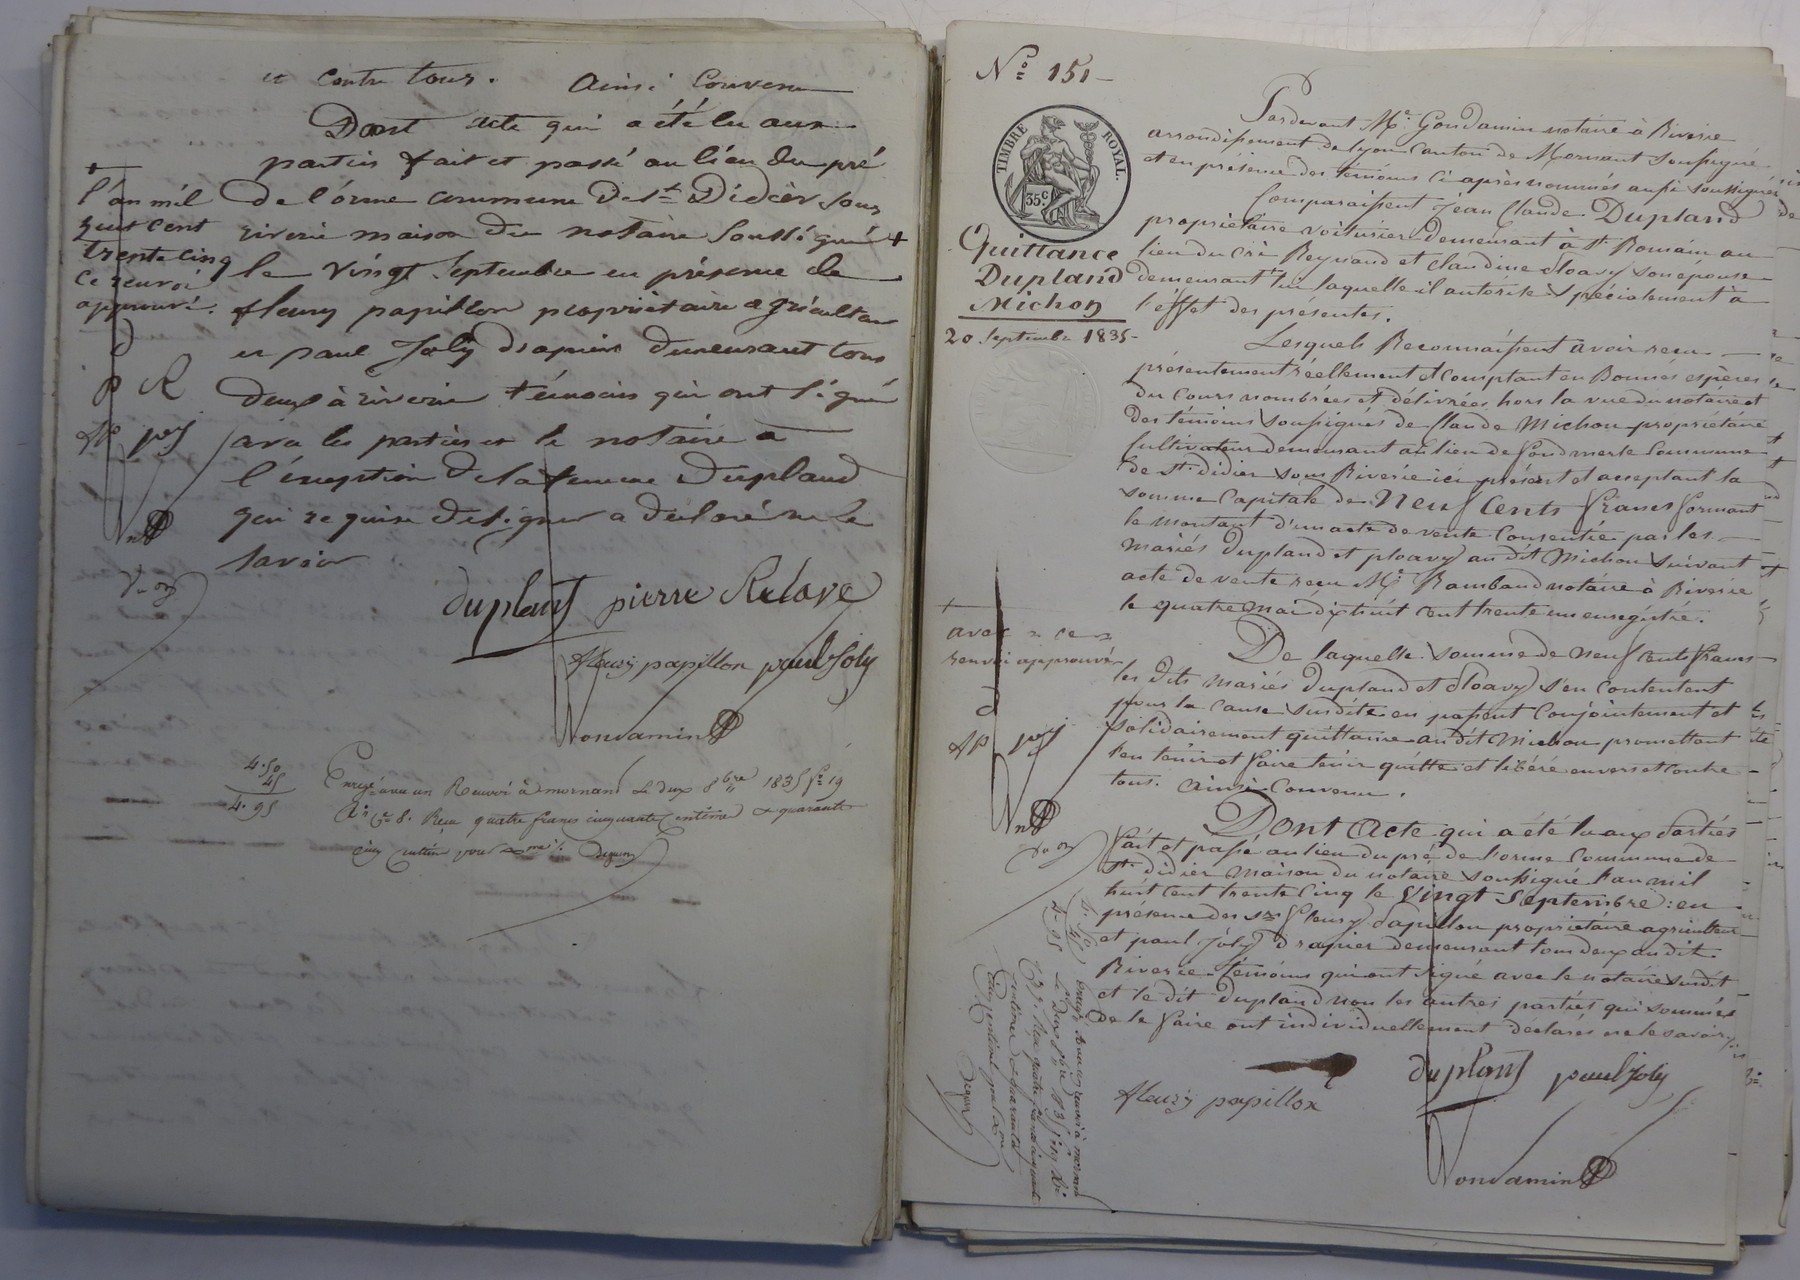 et contre tous. Ainsi Convenu
Dont acte qui a été lu aux
parties fait et passé au lieu du pré
de l'orme commune de St Didier sous
riverie maison du notaire soussigné +
le vingt Septembre en présence de
fleury papillon propriétaire agriculteur
et paul Joly drapier demeurant tous
deux à riverie témoins qui ont signé
avec les parties et le notaire à
l'exception de la femme Dupland
qui requise de signer a déclaré ne le
savoir
+
l'an mil
huit cent
trente cinq
ce renvoi
approuvé.
d
p R
fp pj
duplant pierre Relave
fleury papillon paul Joly
Gondamin
4.50
45
4.95
Enregé avec un Renvoi à mornant le deux 8bre 1835 fo 19
Ro Ce 8. Reçu quatre francs cinquante centimes & quarante
cinq centimes pour Dme
No 151
TIMBRE ROYAL.
35c
Quittance
Dupland
Michon
20 Septembre 1835
Pardevant Me Gondamin notaire à Riverie
arrondissement de Lyon Canton de Mornant soussigné
et en présence des témoins ci après nommés aussi soussignés
Comparaissent Jean Claude Dupland
propriétaire voiturier demeurant à St Romain au
lieu du crè Reynaud et claudine ploavy son épouse
demeurant lui laquelle il autorise spécialement à
l'effet des présentes.
Lesquels Reconnaissent avoir reçu
présentement réellement et comptant en Bonnes espèces
du Cours nombrées et délivrées hors la vue du notaire et
des témoins soussignés de Claude Michon propriétaire
Cultivateur demeurant au lieu de fondmerle Commune
de St Didier sous Riverie ici présent et acceptant la
somme Capitale de Neuf Cents francs formant
le montant d'un acte de vente Consentie par les
mariés Dupland et ploavy au dit Michon suivant
acte de vente reçu Me Rambaud notaire à Riverie
le quatre mai dix huit cent trente un enregistré.
De laquelle somme de neuf cents francs
les dits mariés Dupland et ploavy s'en contentent
pour la cause susdite en passent Conjointement et
solidairement quittance au dit Michon promettant
l'en tenir et faire tenir quitte et libéré envers et contre
tous. Ainsi Convenu.
Dont Acte qui a été lu aux parties
fait et passé au lieu du pré de l'orme Commune de
St didier maison du notaire soussigné l'an mil
huit cent trente cinq le vingt Septembre : en
présence des srs fleury papillon propriétaire agriculteur
et paul Joly drapier demeurant tous deux au dit
Riverie témoins qui ont signé avec le notaire susdit
et le dit Dupland non les autres parties qui sommés
de le faire ont individuellement déclarés ne le savoir
+
avec ce
renvoi approuvé
d
fp pj
duplant paul Joly
fleury papillon
Gondamin
4.50
45
4.95
Enregé avec un renvoi à mornant
le deux 8bre 1835 fo 19 Ro
Ce 9 Reçu quatre francs cinquante
centimes & quarante
cinq centimes pour Dme